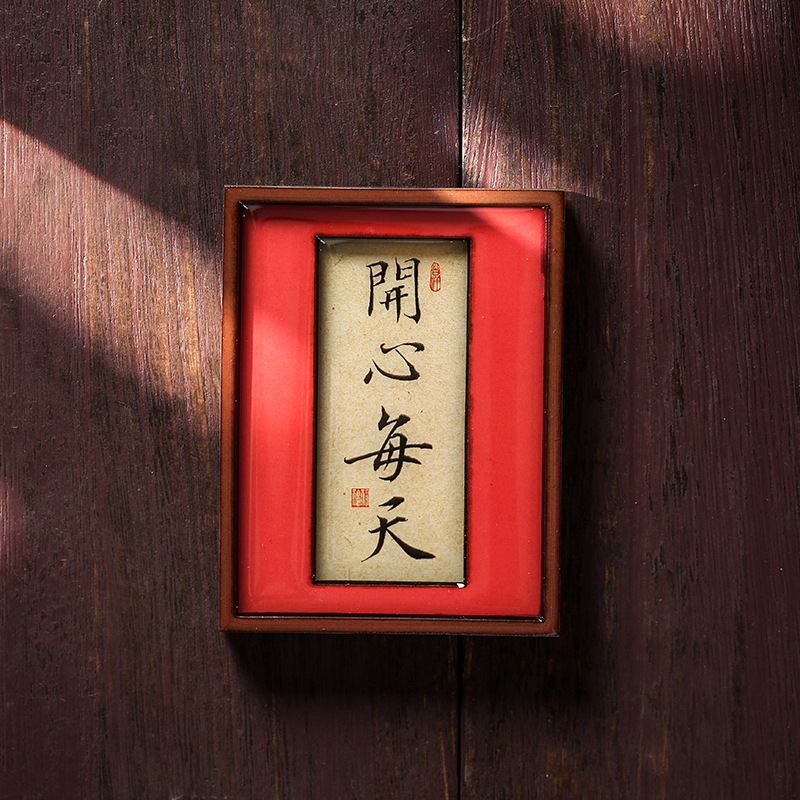 開心每天